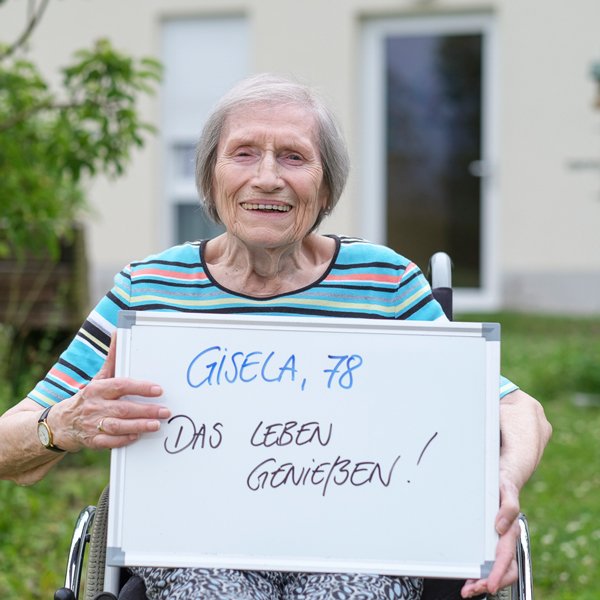 GISELA, 78
DAS LEBEN
GENIEßEN!